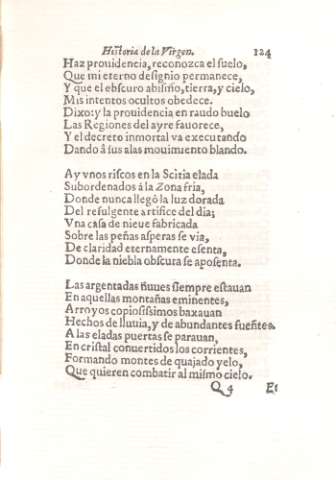 Historia de la Virgen. 124
Haz prouidencia, reconozca el suelo,
Que mi eterno designio permanece,
Y que el obscuro abismo, tierra, y cielo,
Mis intentos ocultos obedece.
Dixo: y la prouidencia en raudo buelo
Las Regiones del ayre fauorece,
Y el decreto inmortal va executando
Dando â sus alas mouimiento blando.
Ay vnos riscos en la Scitia elada
Subordenados á la Zona fria,
Donde nunca llegô la luz dorada
Del refulgente artifice del dia;
Vna casa de nieue fabricada
Sobre las peñas asperas se via,
De claridad eternamente esenta,
Donde la niebla obscura se aposenta.
Las argentadas nuues siempre estauan
En aquellas montañas eminentes,
Arroyos copiosissimos baxauan
Hechos de lluuia, y de abundantes fuentes.
A las eladas puertas se parauan,
En cristal conuertidos los corrientes,
Formando montes de quajado yelo,
Que quieren combatir al mismo cielo.
Q 4 Es